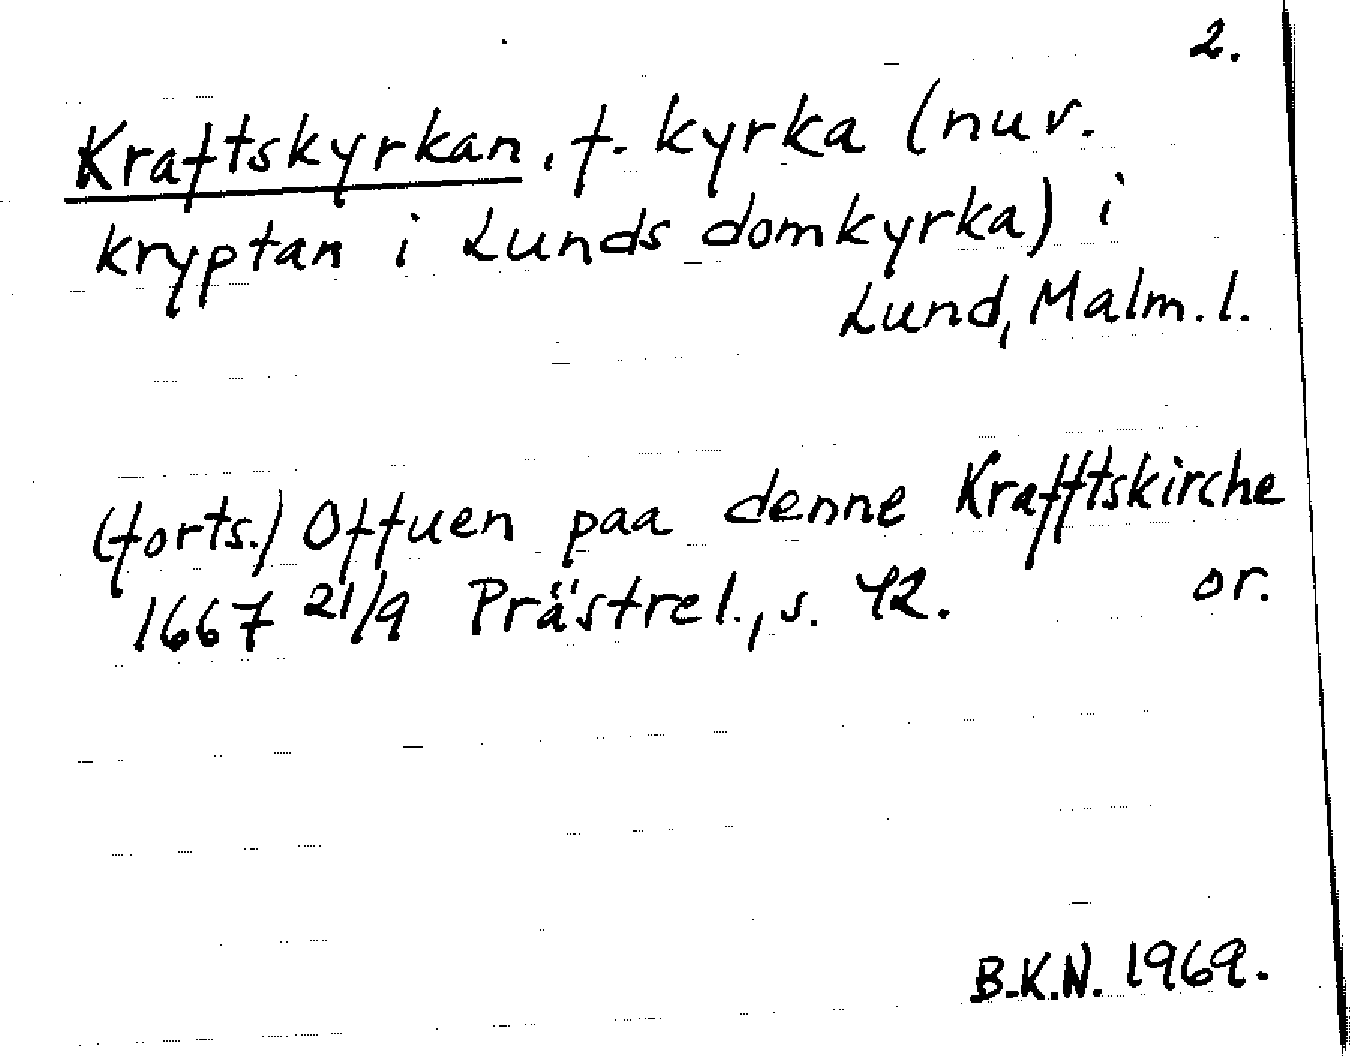 2.
Kraftskyrkan, f. kyrka (nuv.
kryptan i Lunds domkyrka) i
Lund, Malm. l.
(forts.) Offuen paa denne Krafftskirche
1667 21/9 Prästrel., s. 42. or.
B.K.N. 1969.